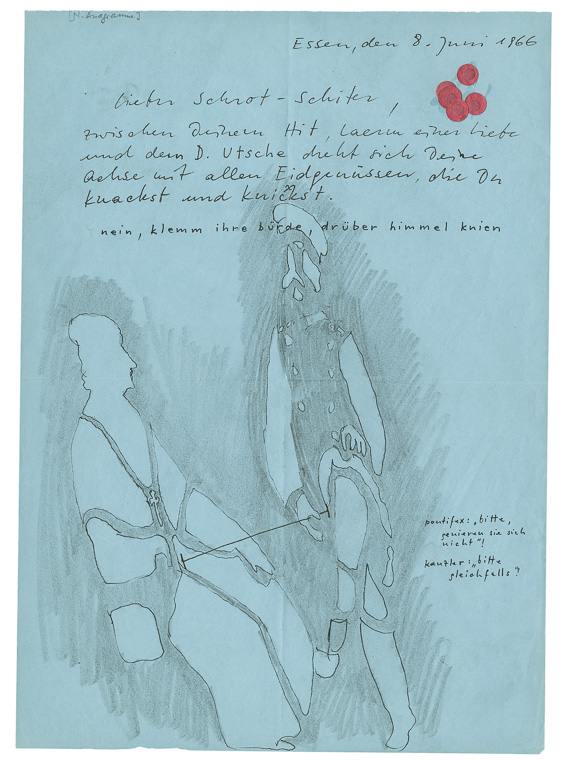 [N. Anagramm.]
Essen, den 8. Juni 1966
Lieber Schrot-Schiter,
zwischen Deinem Hit, Laerm einer Liebe
und dem D. Utsche dreht sich Deine
Achse mit allen Eidgenüssen, die Du
knackst und knickst.
nein, klemm ihre bürde, drüber himmel knien
pontifex: „bitte,
genieren sie sich
nicht"!
kanzler: „bitte
gleichfalls?